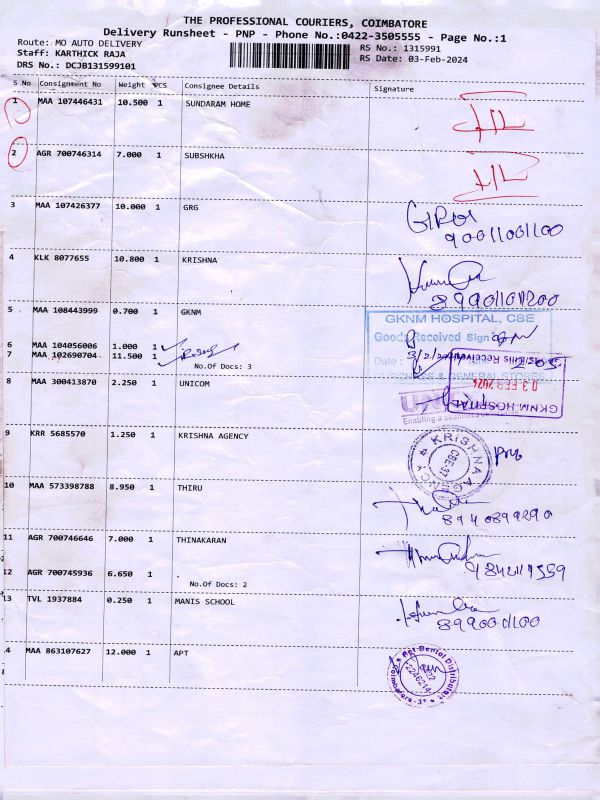 THE PROFESSIONAL COURIERS, COIMBATORE
Delivery Runsheet - PNP - Phone No.:0422-3505555 - Page No.:1
Route: MO AUTO DELIVERY
RS No.: 1315991
Staff: KARTHICK RAJA
RS Date: 03-Feb-2024
DRS No.: DCJB131599101
S No Consignment No Weight PCS Consignee Details Signature
1 MAA 107446431 10.500 1 SUNDARAM HOME
2 AGR 700746314 7.000 1 SUBSHKHA
3 MAA 107426377 10.000 1 GRG
4 KLK 8077655 10.800 1 KRISHNA
5 MAA 108443999 0.700 1 GKNM
GKNM HOSPITAL, CBE
Goods Received Sign
Date : 3/2/2024
& GENERAL STORES
6 MAA 104056006 1.000 1
7 MAA 102690704 11.500 1
No.Of Docs: 3
Bills Received
03 FEB 2024
GKNM HOSPITAL
8 MAA 300413870 2.250 1 UNICOM
Enabling a
9 KRR 5685570 1.250 1 KRISHNA AGENCY
KRISHNA AGENCY
CBE-37
10 MAA 573398788 8.950 1 THIRU
8940899290
11 AGR 700746646 7.000 1 THINAKARAN
12 AGR 700745936 6.650 1
No.Of Docs: 2
13 TVL 1937884 0.250 1 MANIS SCHOOL
14 MAA 863107627 12.000 1 APT
Apt Dental Distributors
2246214
Coimbatore